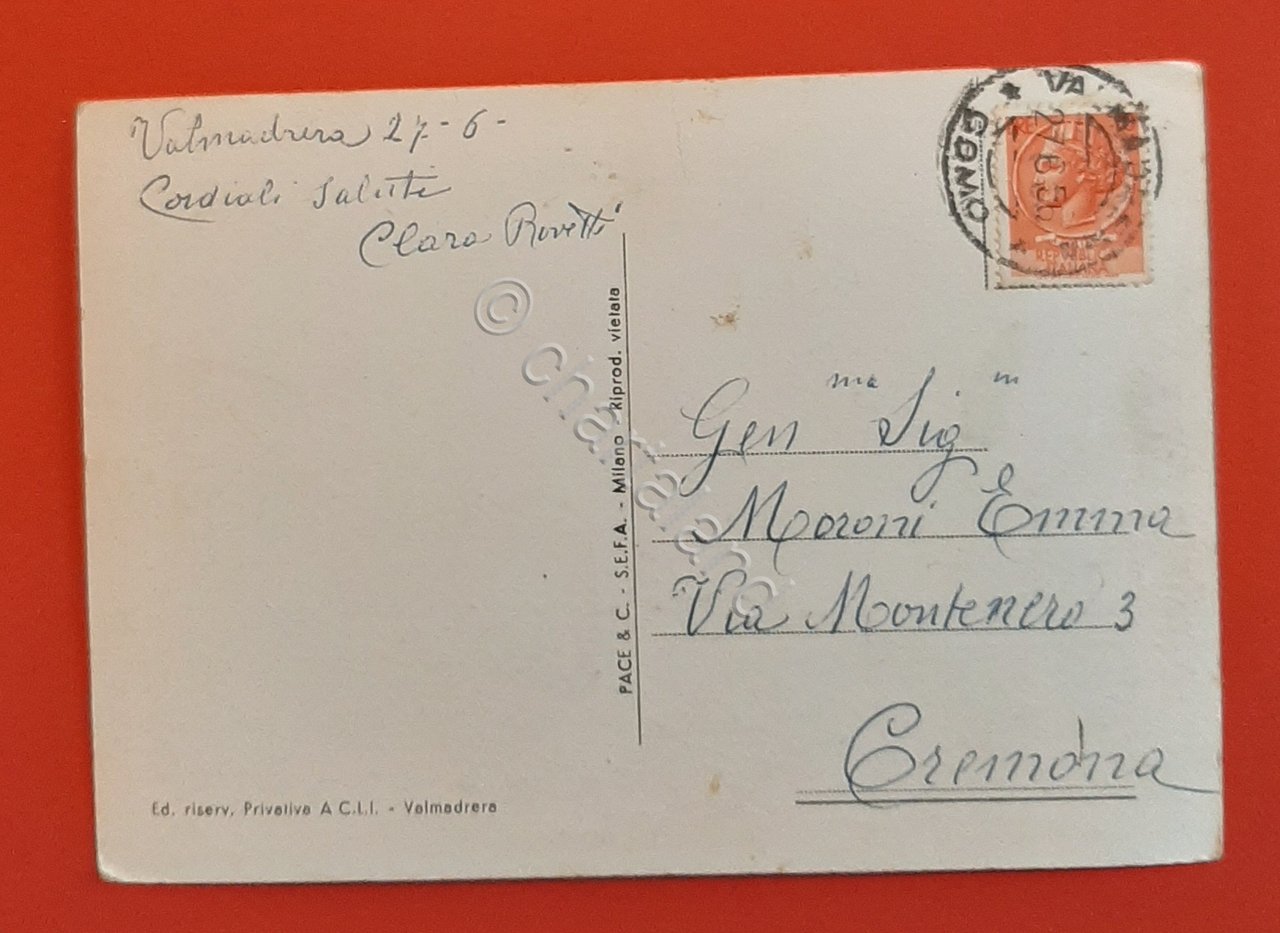 Valmadrera 27-6-
Cordiali Saluti
Clara Rovetti
PACE & C. - S.E.F.A. - Milano - Riprod. vietata
Ed. riserv. Privativa A.C.L.I. - Valmadrera
COMO
REPUBBLICA
ITALIANA
Gen ma Sig na
Moroni Emma
Via Montenero 3
Cremona
© charialand